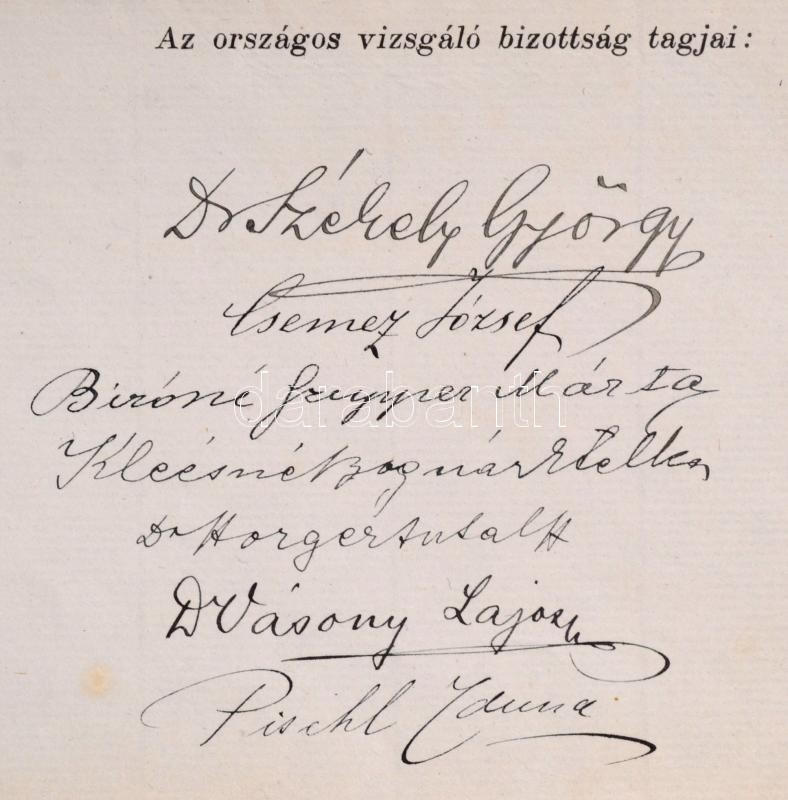 Az országos vizsgáló bizottság tagjai:
Dr Székely György
Csemez József
Biróné Márta
darabanth
Kléésné Bognár Etelka
Dr Horger
Dr Vásony Lajos
Pischl Iduna